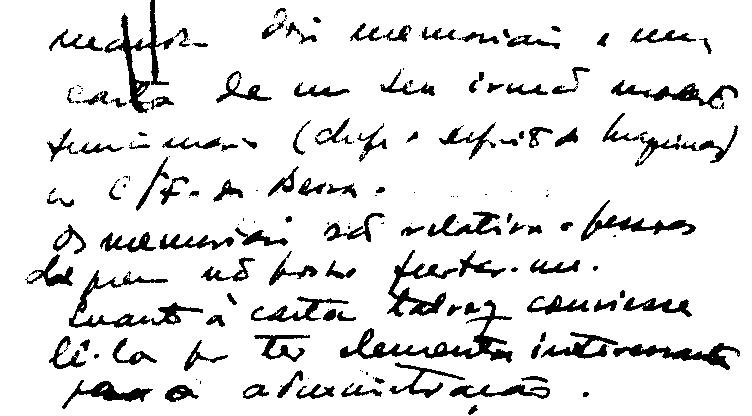 mando dois memoriais e uma
carta de um seu irmão
funcionario (chefe de
do C/F. da Beira.
Os memoriais são relativos a pessoas
de quem não posso furtar-me.
Quanto à carta talvez conviesse
lê-la por ter elementos interessantes
para a administração.